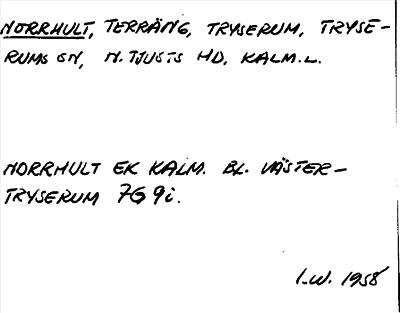 NORRHULT, TERRÄNG, TRYSERUM, TRYSE-
RUMS SN, N. TJUSTS HD, KALM.L.
NORRHULT EK KALM. BL. VÄSTER-
TRYSERUM 7G 9i.
I.W. 1958